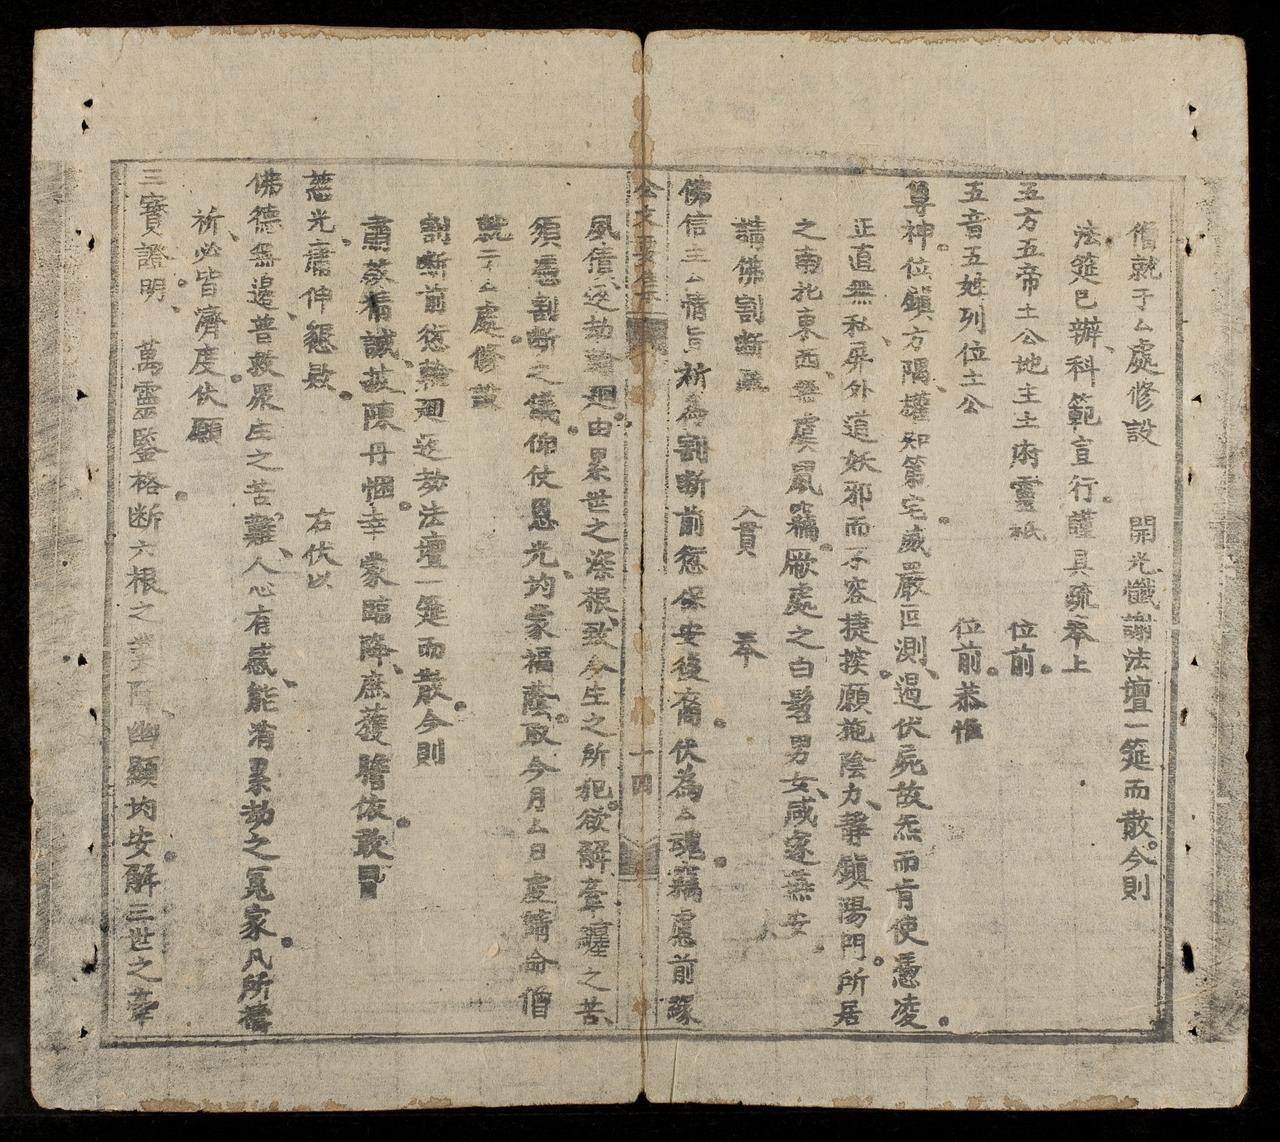 僧就于厶處修設　開光懺謝法壇一筵而散今則
法筵已辦科範宣行謹具疏奉上
五方五帝土公地主土府靈祇　位前
五音五姓列位土公　位前恭惟
尊神位鎮方隅權知第宅威嚴叵測遏伏屍故炁而肯使憑凌
正直無私屏外道妖邪而不容捷挨願施陰力靜鎮陽門所居
之南北東西無虞風禍厥處之白髫男女咸遂燕安
請佛割斷疏　厶貫　奉
佛信主厶情旨祈為割斷前愆保安後裔伏為厶魂竊慮前緣
公文　十四
風債逐劫輪廻由累世之深根致今生之所犯欲解牽纏之苦
須憑割斷之儀仰仗恩光均蒙福蔭取今月厶日虔請命僧
就于厶處修設
割斷前愆輪廻逐劫法壇一筵而散今則
肅蒸精誠披陳丹悃幸蒙臨降庶獲瞻依敢冒
慈光庸伸懇款　右伏以
佛德無邊普救眾生之苦難人心有感能消累劫之冤家凡所禱
祈必皆濟度伏願
三寶證明　萬靈鑒格断六根之 幽顯均安解三世之牽